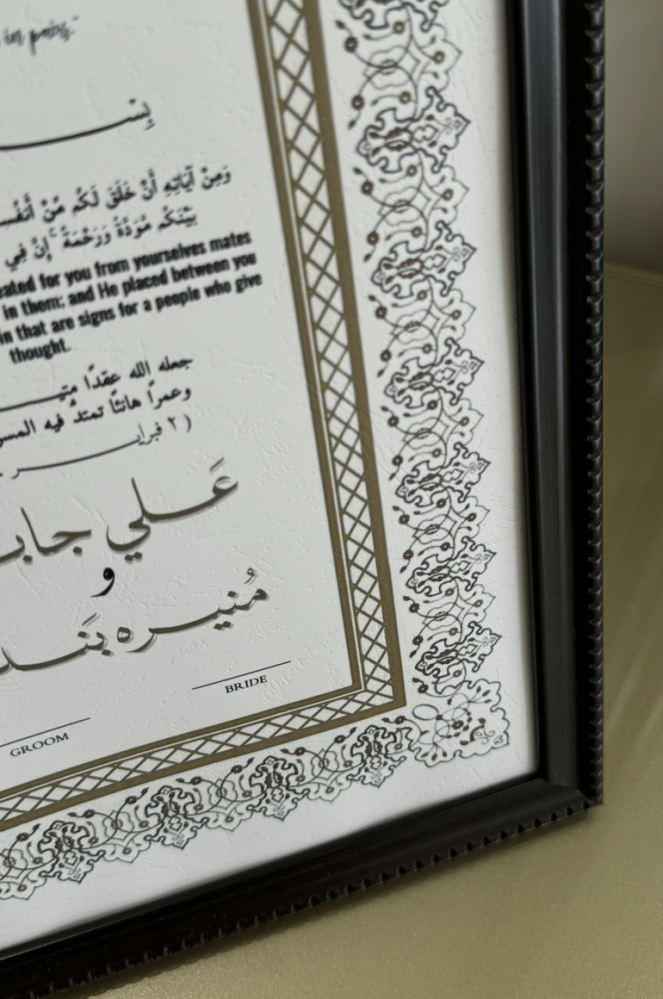 in pairs"
بِسْـ
وَمِنْ آيَاتِهِ أَنْ خَلَقَ لَكُم مِّنْ
بَيْنَكُم مَّوَدَّةً وَرَحْمَةً ۚ إِنَّ فِي
for you from yourselves mates
in them; and He placed between you
in that are signs for a people who give
thought.
جعله الله عقدًا
وعمرًا هانئًا تمتد فيه
(٢ فبرايـر
عَـلي
و
مُنيـره
BRIDE
GROOM